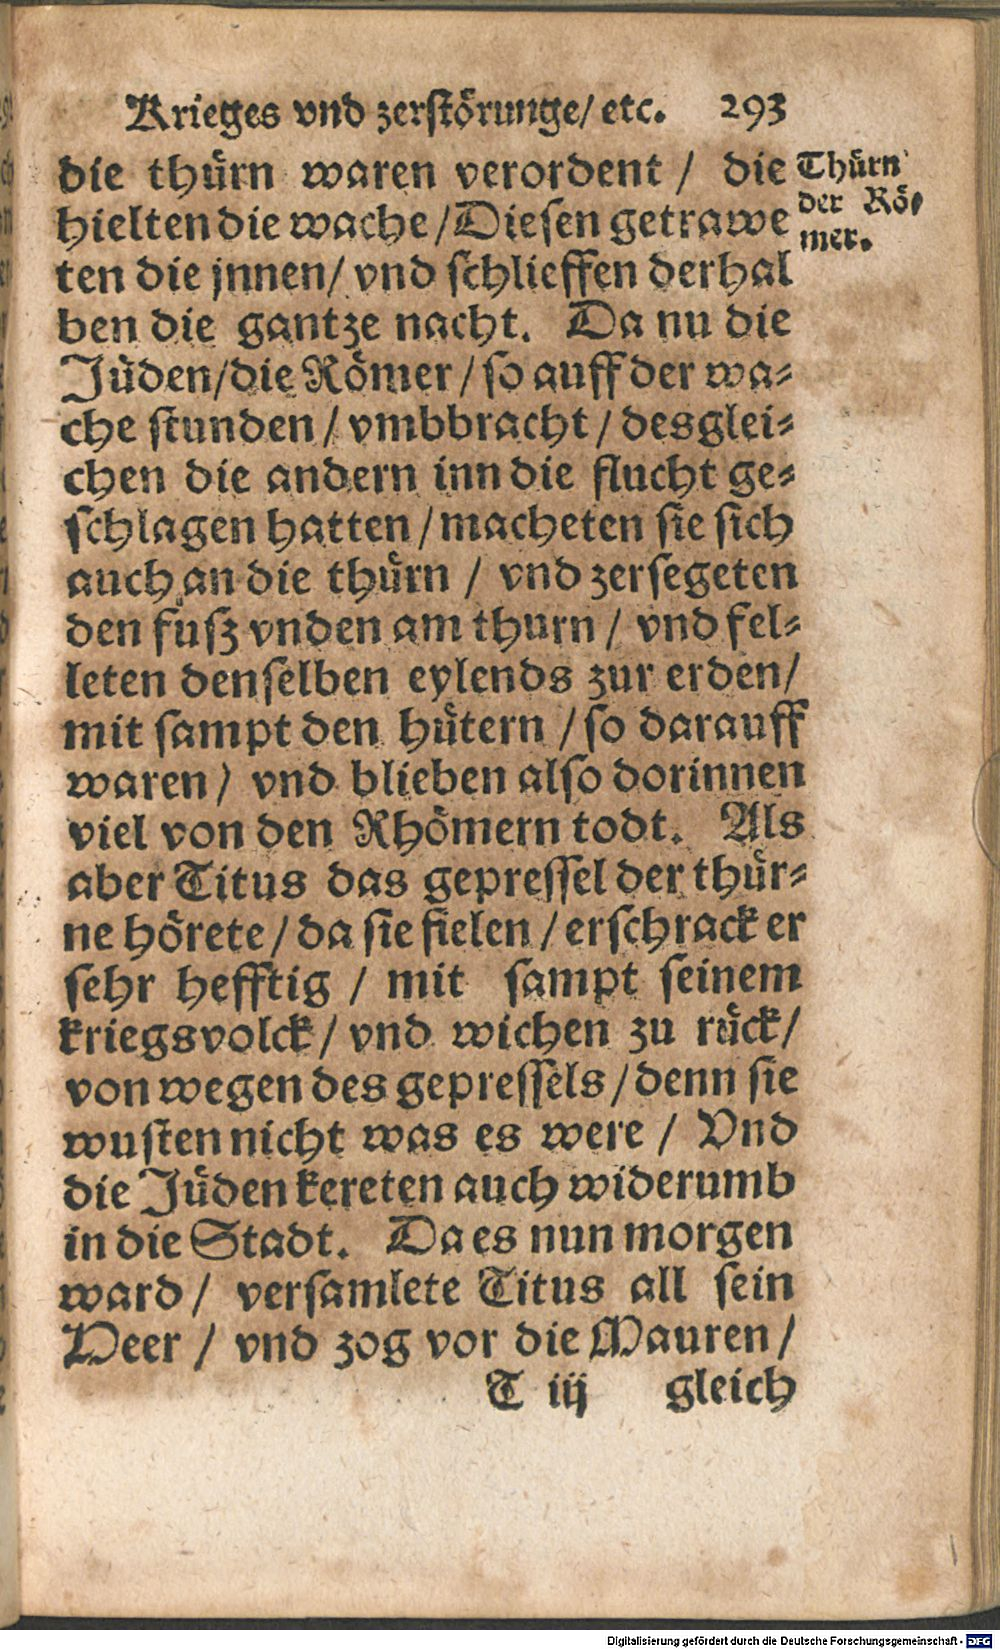 Krieges vnd zerstörunge/ etc. 293
die thürn waren verordent / die
hielten die wache / Diesen getrawe
ten die jnnen/ vnd schlieffen derhal
ben die gantze nacht. Da nu die
Jüden/die Römer / so auff der wa-
che stunden / vmbbracht / desglei-
chen die andern inn die flucht ge-
schlagen hatten / macheten sie sich
auch an die thürn / vnd zersegeten
den fusz vnden am thurn / vnd fel-
leten denselben eylends zur erden/
mit sampt den hütern / so darauff
waren / vnd blieben also dorinnen
viel von den Rhömern todt. Als
aber Titus das gepressel der thür-
ne hörete / da sie fielen / erschrack er
sehr hefftig / mit sampt seinem
kriegsvolck / vnd wichen zu rück/
von wegen des gepressels / denn sie
wusten nicht was es were / Vnd
die Jüden kereten auch widerumb
in die Stadt. Da es nun morgen
ward / versamlete Titus all sein
Heer / vnd zog vor die Mauren /
T iij gleich
Thürn
der Rö-
mer.
Digitalisierung gefördert durch die Deutsche Forschungsgemeinschaft - DFG